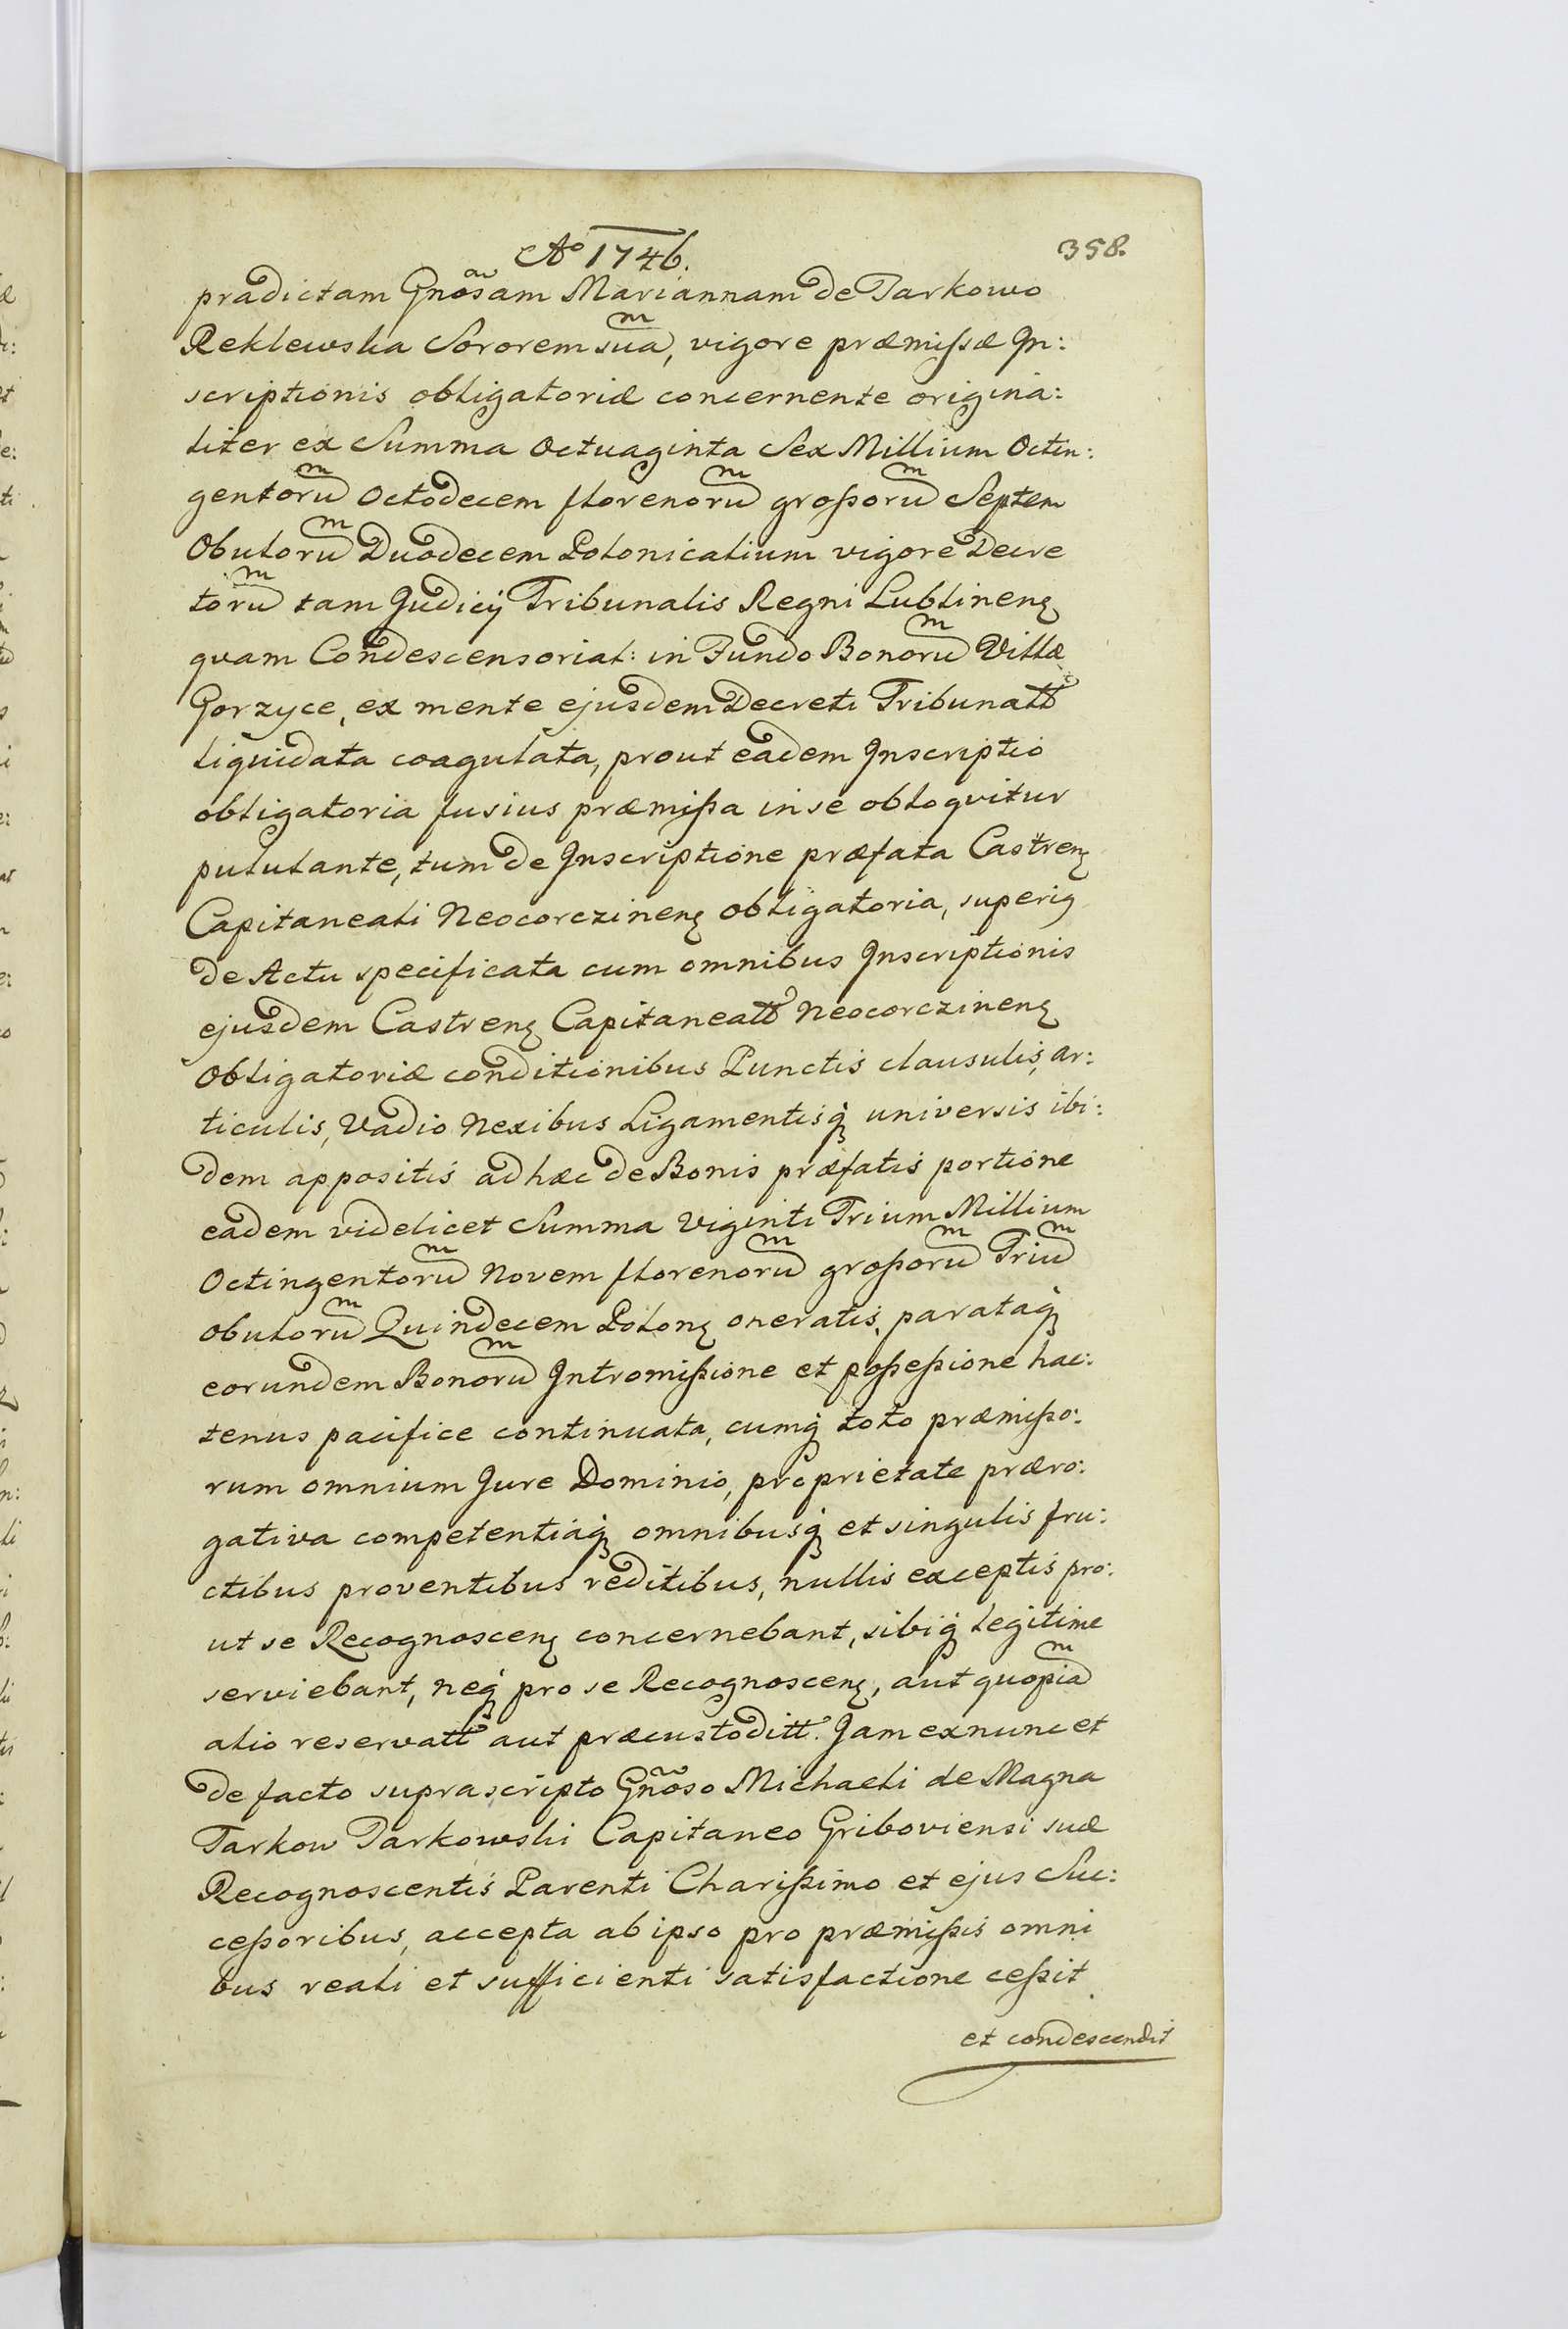 Aͦ 1746.
358.
prædictam Gnõsam Mariannam de Tarkowo
Reklewska Sororem suaᵐ, vigore præmissæ In:
scriptionis obligatoriæ concernente origina:
liter ex Summa Octuaginta Sex Millium Octin:
gentoruᵐ Octodecem florenoruᵐ grossoruᵐ Septem
Obuloruᵐ Duodecem Polonicalium vigore Decre
toruᵐ tam Judicij Tribunalis Regni Lublinenꝫ
quam Condescensorial: in Fundo Bonoruᵐ Villæ
Gorzyce, ex mente ejusdem Decreti Tribunall̃
liquidata coagulata, prout eadem Inscriptio
obligatoria fusius præmissa in se obloquitur
pululante, tum de Inscriptione præfata Castrenꝫ
Capitaneali Neocorczinenꝫ obligatoria, superiꝫ
de Actu specificata cum omnibus Inscriptionis
ejusdem Castrenꝫ Capitaneall̃ Neocorczinenꝫ
Obligatoriæ conditionibus Punctis clausulis, ar:
ticulis, Vadio Nexibus Ligamentisq́ universis ibi:
dem appositis ad hæc de Bonis præfatis portione
eadem videlicet Summa Viginti Trium Millium
Octingentoruᵐ Novem florenoruᵐ grossoruᵐ Triuᵐ
obuloruᵐ Quindecem Polonꝫ oneratis, parataq́
eorundem Bonoruᵐ Intromissione et possessione hac:
tenus pacifice continuata, cumq́ toto præmisso:
rum omnium Jure Dominio, proprietate præro:
gativa competentiaq́ omnibusq́ et singulis fru:
ctibus proventibus reditibus, nullis exceptis pro:
ut se Recognoscenꝫ concernebant, sibiq́ legitime
serviebant, neq́ pro se Recognoscenꝫ, aut quopiaᵐ
alio reservatt̃ aut præcustoditt̃. Jam ex nunc et
de facto suprascripto Gnõso Michaeli de Magna
Tarkow Tarkowski Capitaneo Griboviensi suæ
Recognoscentis Parenti Charissimo et ejus Suc:
cessoribus, accepta ab ipso pro præmissis omni
bus reali et sufficienti satisfactione cessit
et condescendit